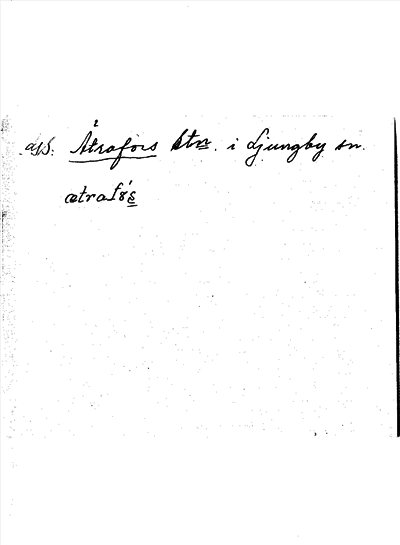 Ätrafors stn. i Ljungby sn.
ætrafɷ́s